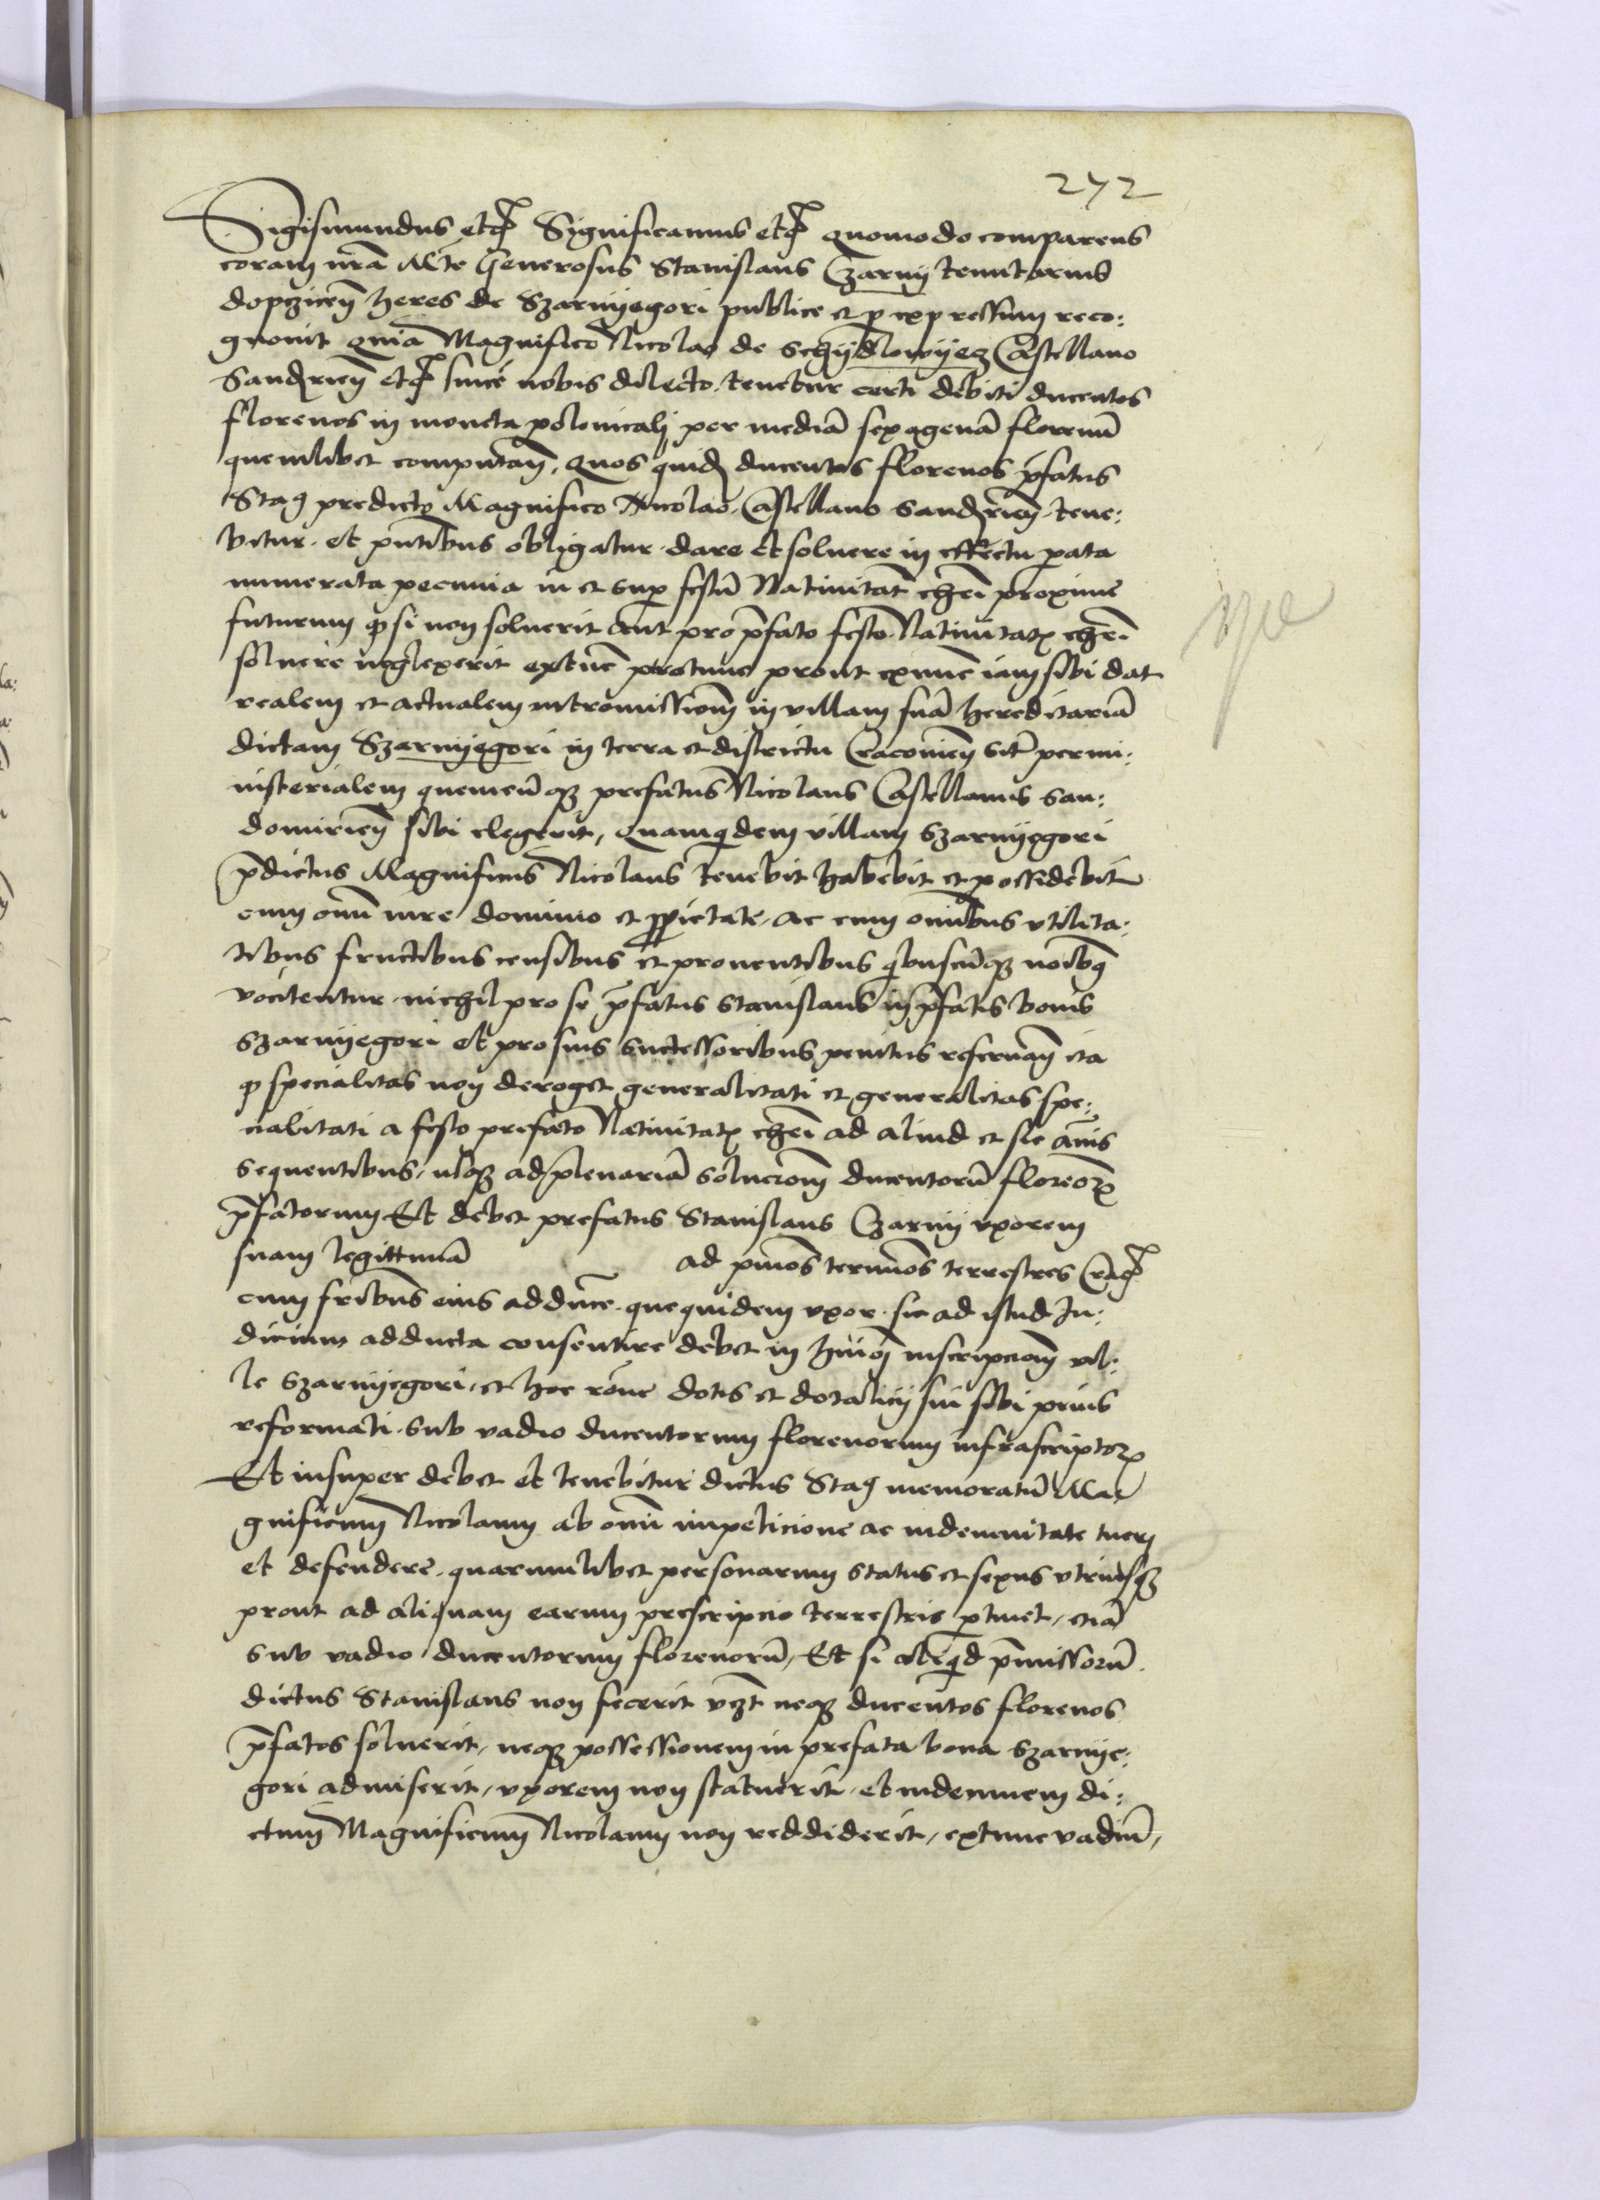 272
Sigismundus etc Significamus etc quomodo comparens
coram nrā Mte Generosus Stanislaus Czarny tenutarius
dopczicen heres de Szarnyegori publice et p expressum reco:
gnovit Quia Magnifico Nicolao de Schydlowyecz Castellano
Sandrien etc sincē nobis dilecto tenetur certi debiti ducentos
florenos in moneta polonicali per mediā sexagenā florenū
quemlibet computan, Quos quid ducentos florenos pfatus
Sta predicto Magnifico Nicolao Castellano Sandrien tene:
bitur et pntibus obligatur dare et solvere in effectu pata
numerata pecunia in et sup festū Nativitat chri proxime
futurum q si non solverit aut pro pfato festo Nativitat chri
solvere neglexerit extūc protunc prout exnūc iam sibi dat
realem et actualem intromissionē in villam suā hereditariā
dictam Szarnyegori in terra et districtu Cracovien sitā per mi:
nisterialem quemcūq prefatus Nicolaus Castellanus San:
domirien sibi elegerit, Quamquidem villam Szarnyegori
pdictus Magnificus Nicolaus tenebit habebit et possidebit
cum omī iure dominio et pprietate ac cum omībus utilita:
tibus fructibus censibus et proventibus qbuscūq noībq
vocitentur nichil pro se pfatus Stanislaus in pfatis bonis
Szarnyegori et pro suis successoribus penitus reservan ita
q specialitas non deroget generalitati et generalitas spe:
cialitati a festo prefato Nativitat chri ad aliud et sic annis
sequentibus, usq ad plenariā solucionē ducentorū florenor
pfatorum Et debet prefatus Stanislaus Czarny uxorem
suam legittimā ad pmos terminos terrestres Crac
cum fribus eius adducē que quidem uxor sic ad istud Iu:
dicium adducta consentire debet in hmōi inscripcionē vil:
le Szarnyegori, et hoc rōne dotis et dotalicij sui sibi prius
reformati sub vadio ducentorum florenorum infrascriptor
Et insuper debet et tenebitur dictus Sta memoratū Ma
gnificum Nicolaum ab omī impeticione ac indemnitate tueri
et defendere quarumlibet personarum status et sexus utriusq
prout ad aliquam earum prescripcio terrestris ptinet, etiā
sub vadio ducentorum florenorū, Et si aliqd pmissorū
dictus Stanislaus non fecerit vzt neq ducentos florenos
pfatos solverit, neq possessionem in prefata bona Szarnye:
gori admiserit, uxorem non statuerit et indemnem di:
ctum Magnificum Nicolaum non reddiderit, extunc vadiū,